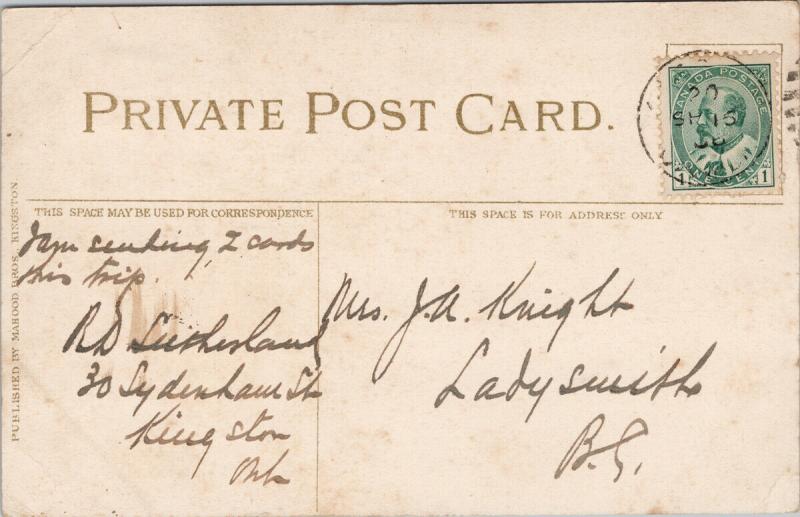 PRIVATE POST CARD.
CANADA POSTAGE
ONE CENT
1 1
20
SP 15
THIS SPACE MAY BE USED FOR CORRESPONDENCE
THIS SPACE IS FOR ADDRESS ONLY
I am sending 2 cards
this trip.
RD Sutherland
30 Sydenham St
Kingston
Ont
Mrs. J.A. Knight
Ladysmith
B.C.
PUBLISHED BY MAHOOD BROS. KINGSTON